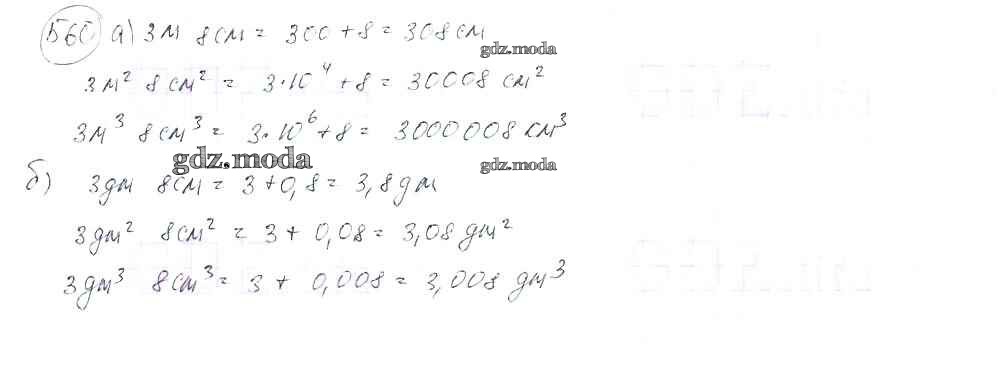 560 а) 3м 8см = 300 + 8 = 308 см
gdz.moda
3м² 8 см² = 3·10⁴ + 8 = 30008 см²
3м³ 8см³ = 3·10⁶ + 8 = 3000008 см³
gdz.moda gdz.moda
б) 3дм 8см = 3 + 0,8 = 3,8 дм
3дм² 8см² = 3 + 0,08 = 3,08 дм²
3дм³ 8см³ = 3 + 0,008 = 3,008 дм³